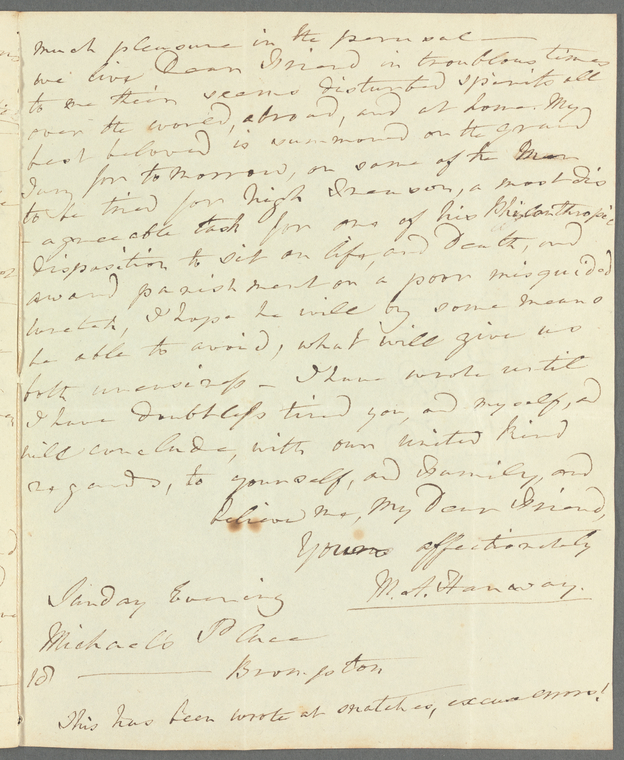 much pleasure in the perusal —
we live Dear Friend in troublous times
to me their seems disturbed spirits all
over the world, abroad, and at home. My
best beloved is summoned on the grand
Jury for tomorrow, on some of the Men
to be tried for high Treason, a most dis
-agreeable task for one of his Philanthropic
disposition to sit on life, and Death, and
award punishment on a poor misguided
wretch, I hope he will by some means
be able to avoid, what will give us
both uneasiness – I have wrote until
I have doubtless tired you, and myself, and
will conclude, with our united kind
regards, to yourself, and Family, and
believe me, My Dear Friend,
Yours affectionately
M. A. Hanway.
Sunday Evening
Michaels Place
18 — Brompton
This has been wrote at snatches, excuse errors!